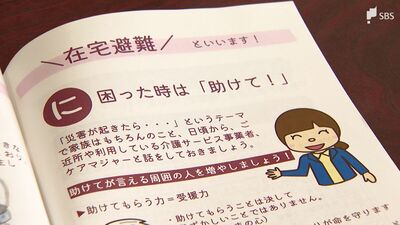 SBS
在宅避難
といいます!
に 困った時は「助けて!」
「災害が起きたら・・・」というテーマ
で家族はもちろんのこと、日頃から、ご
近所や利用している介護サービス事業者、
ケアマジャーと話をしておきましょう。
助けてが言える周囲の人を増やしましょう!
▶助けてもらう力=受援力
・助けてもらうことは決して
ずかしいことではありません。
りが命を守ります